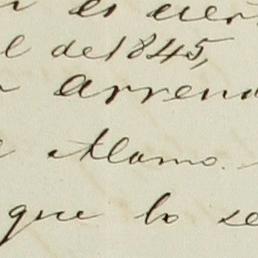 es
l de 1845,
arren
Alamo.
que lo se